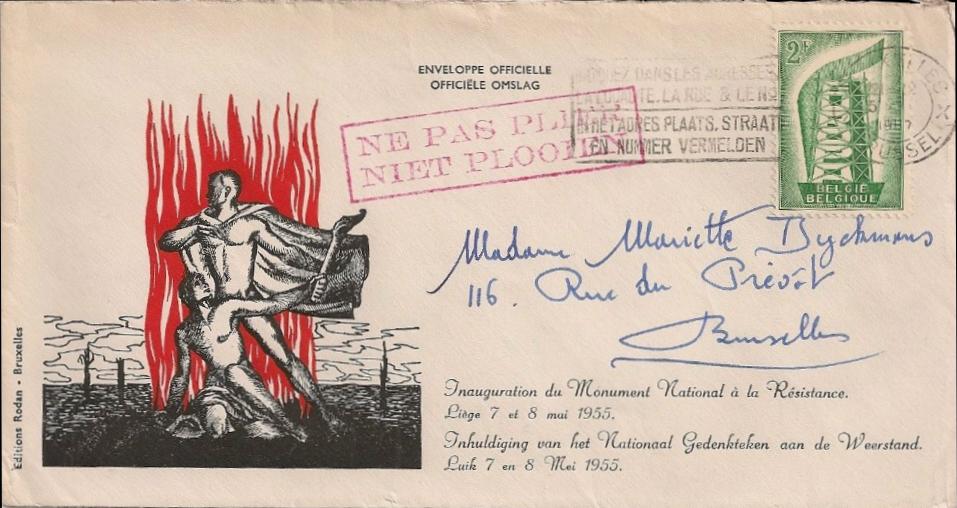 ENVELOPPE OFFICIELLE
OFFICIËLE OMSLAG
NE PAS PLIER
NIET PLOOIEN
DANS LES ADRESSES
LA LOCALITE, LA RUE & LE No
IN HET ADRES PLAATS, STRAAT
EN NUMMER VERMELDEN
2F
BELGIË
BELGIQUE
Madame Mariette Dyckmans
116. Rue du Prévôt
Bruxelles
Inauguration du Monument National à la Résistance.
Liège 7 et 8 mai 1955.
Inhuldiging van het Nationaal Gedenkteken aan de Weerstand.
Luik 7 en 8 Mei 1955.
Editions Rodan - Bruxelles